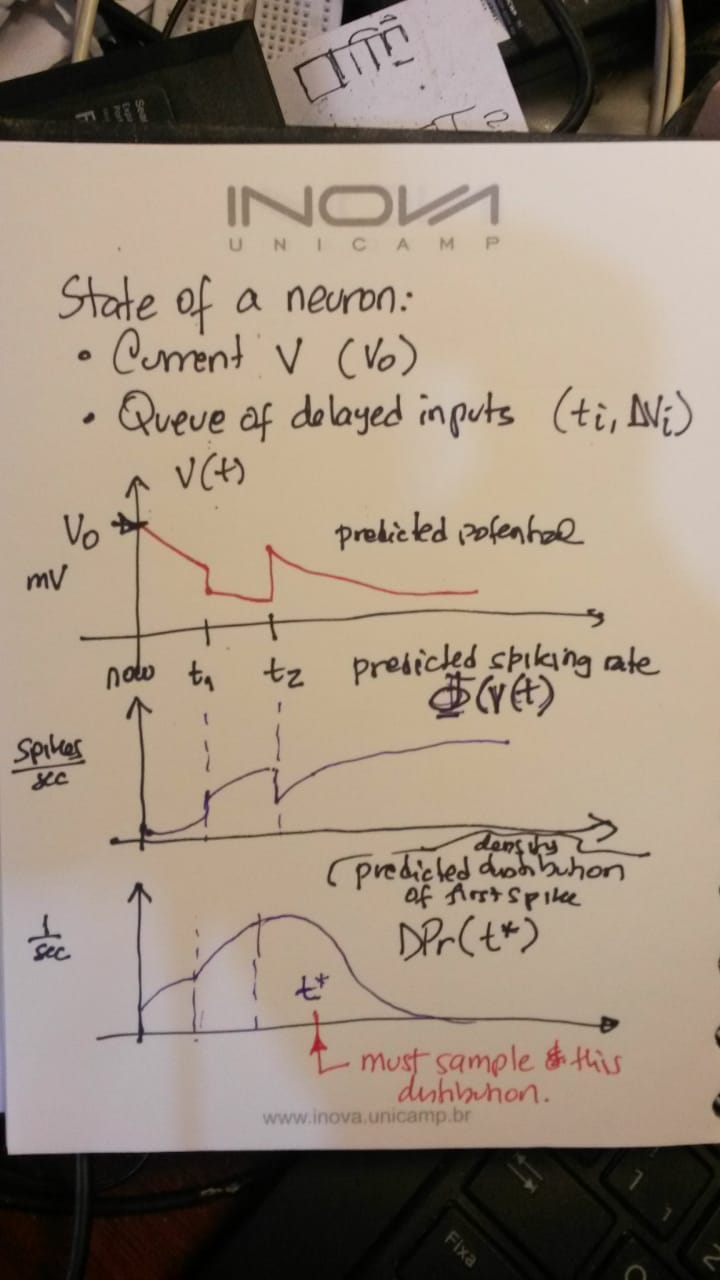 INOVA
UNICAMP
State of a neuron:
• Current V (V₀)
• Queue of delayed inputs (ti, ΔVi)
V(t)
V₀
predicted potential
mV
now t₁ t₂
predicted spiking rate
Φ(V(t)
spikes
sec
density
(predicted distribution
of first spike
1
sec
DPr(t*)
t*
must sample this
distribution.
www.inova.unicamp.br
Fixa